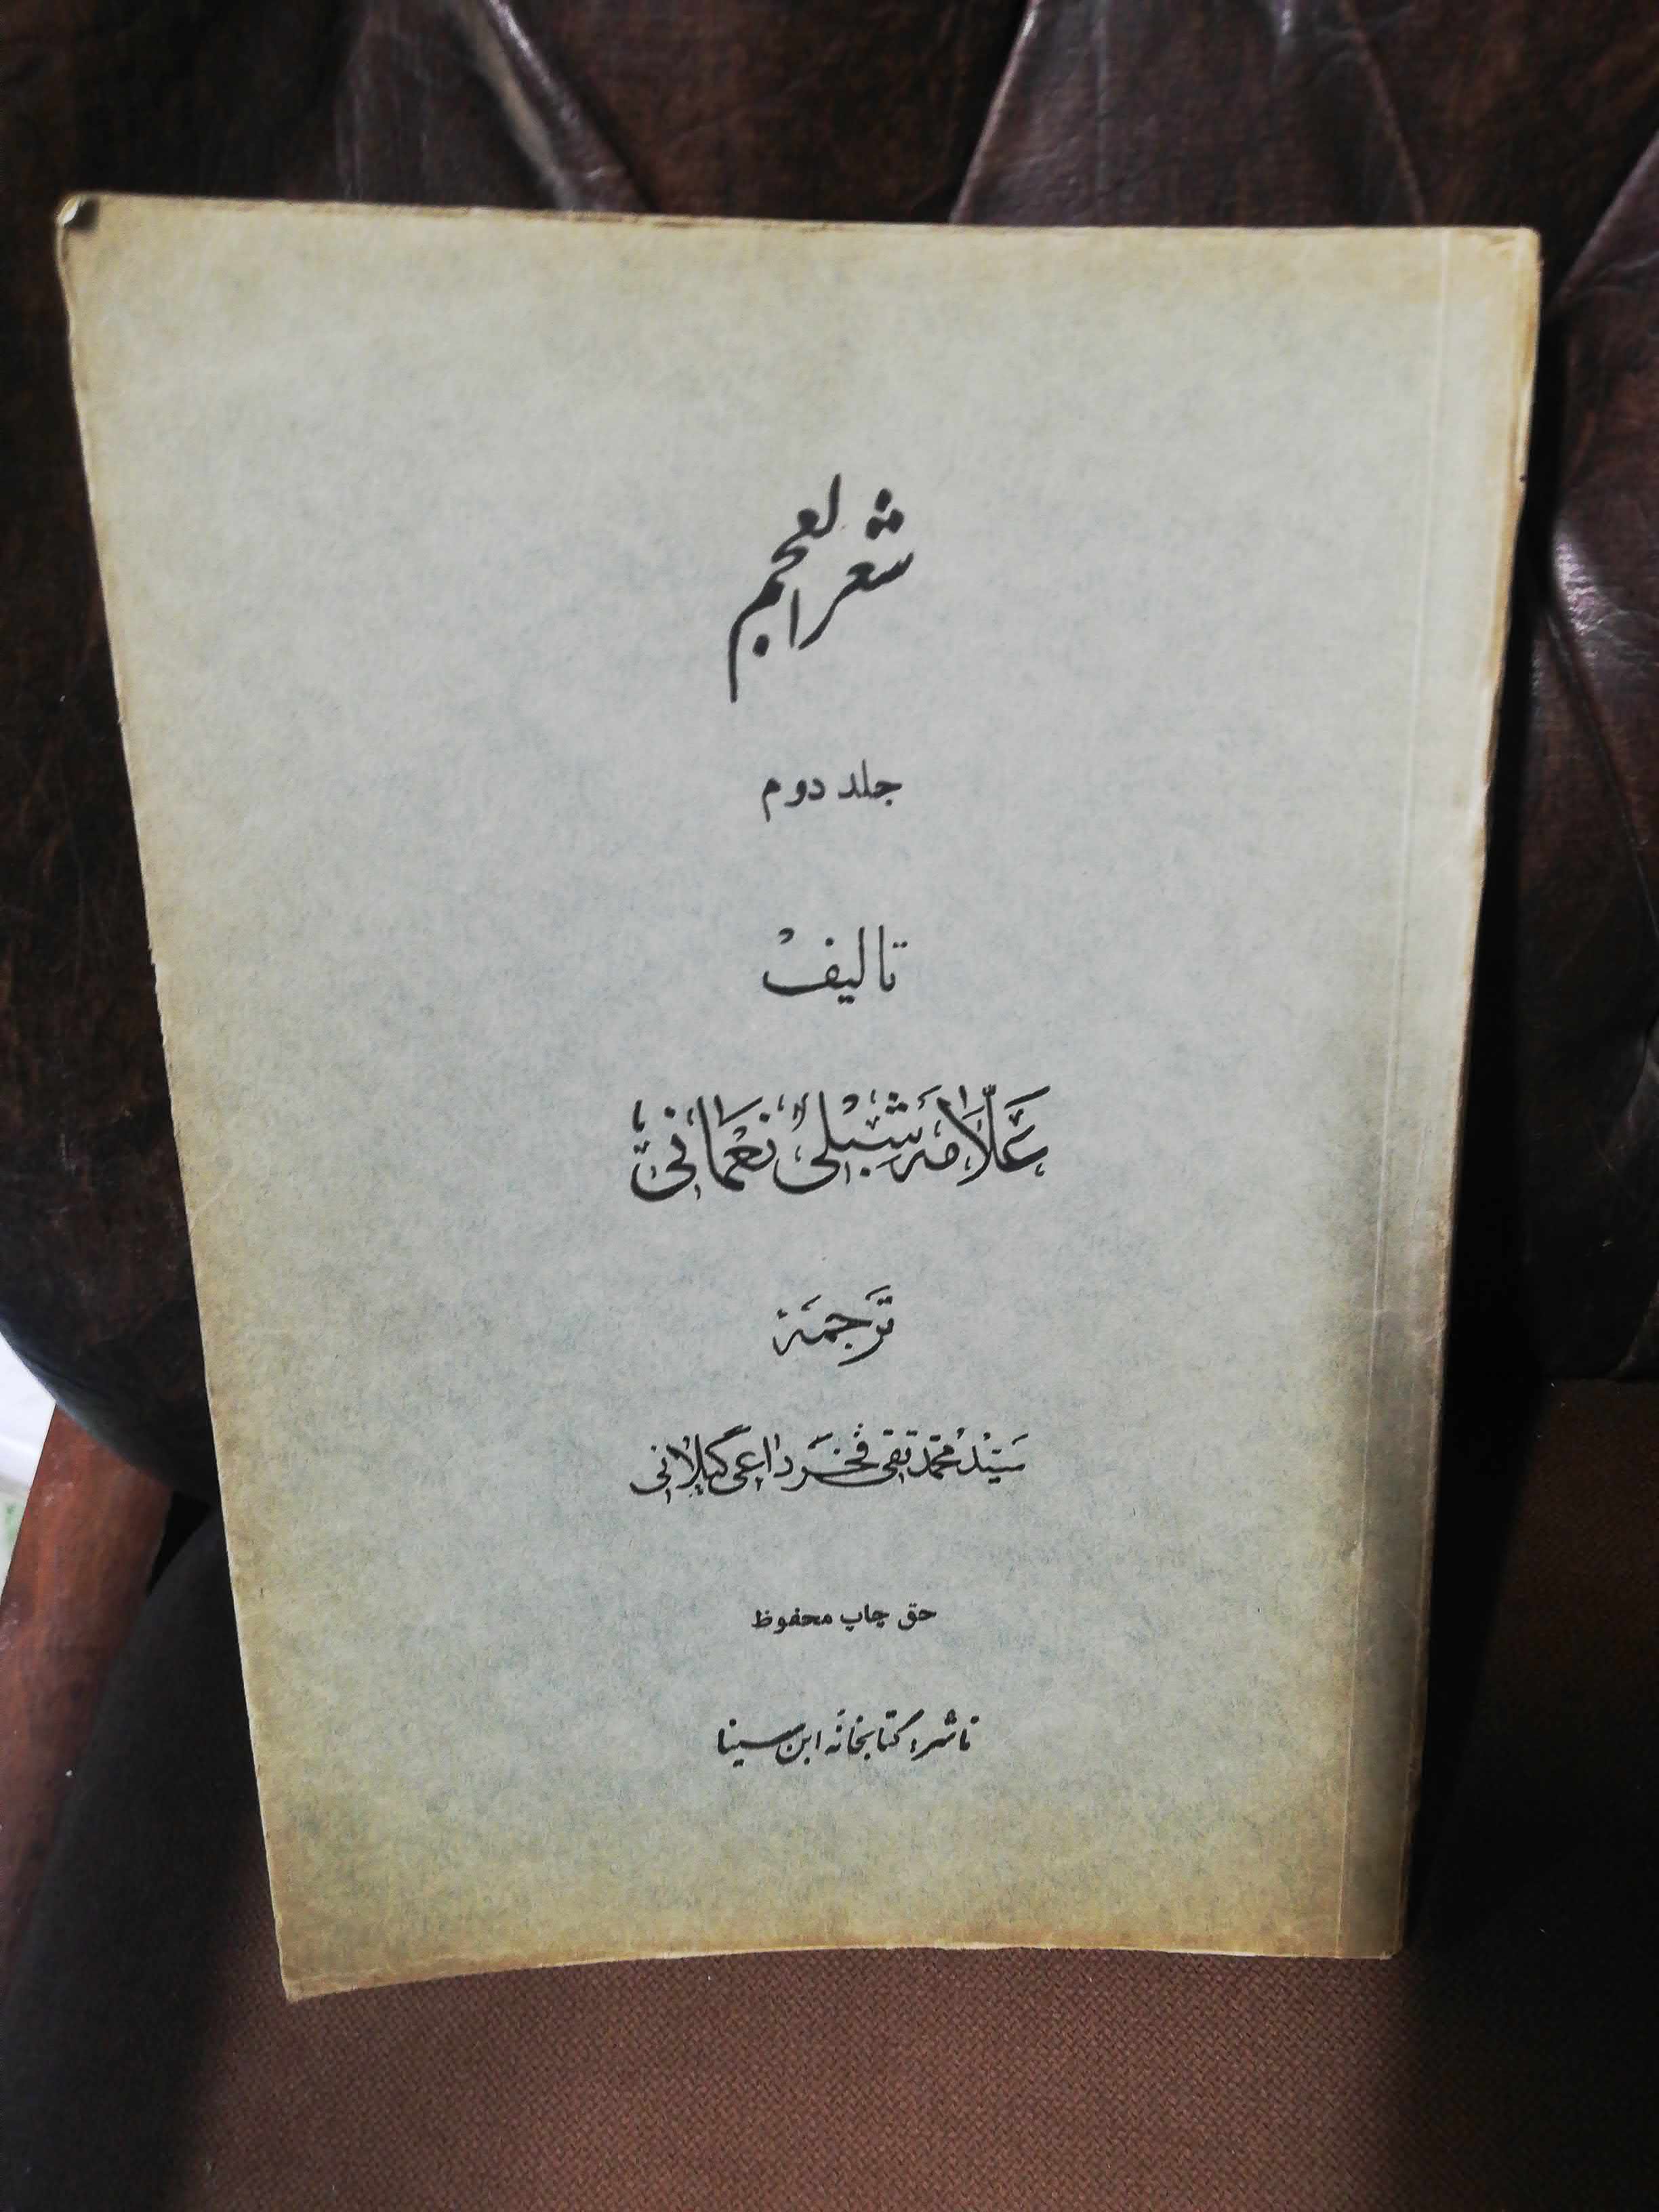 شعرالعجم
جلد دوم
تالیف
علّامه شبلی نعمانی
ترجمه
سید محمد تقی فخر داعی گیلانی
حق چاپ محفوظ
ناشر: کتابخانهٔ ابن سینا